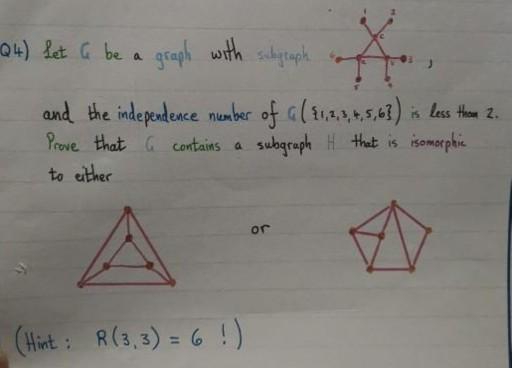 Q4) Let G be a graph with subgraph 1 2 c 6 3 5 4 ,
and the independence number of G({1,2,3,4,5,6}) is less than 2.
Prove that G contains a subgraph H that is isomorphic
to either
or
(Hint: R(3,3) = 6 !)